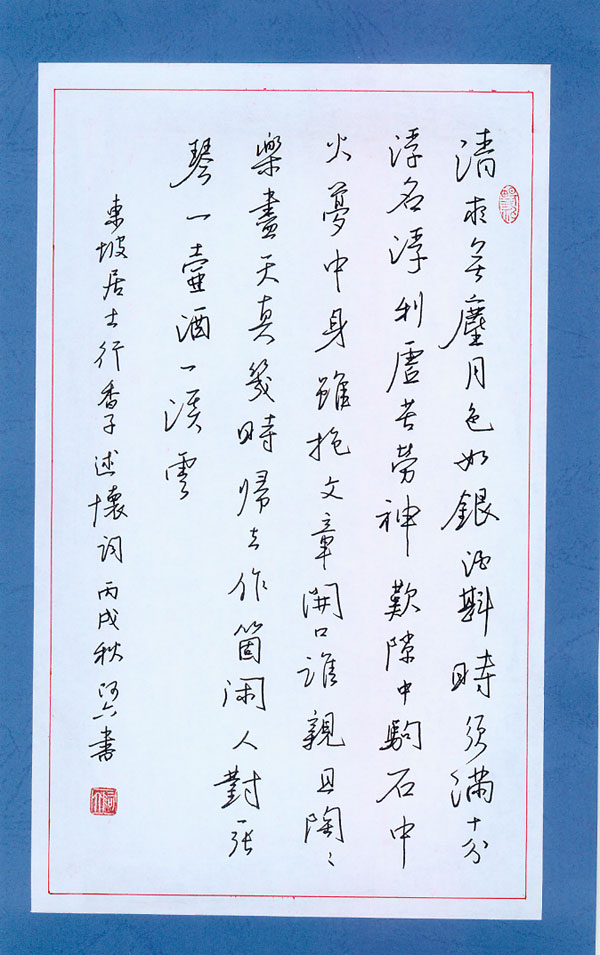 清夜無塵月色如銀酒斟時須滿十分
浮名浮利虛苦勞神歎隙中駒石中
火夢中身雖抱文章開口誰親且陶〻
樂盡天真幾時歸去作箇閑人對一張
琴一壺酒一溪雲
東坡居士行香子述懷詞丙戌秋六書